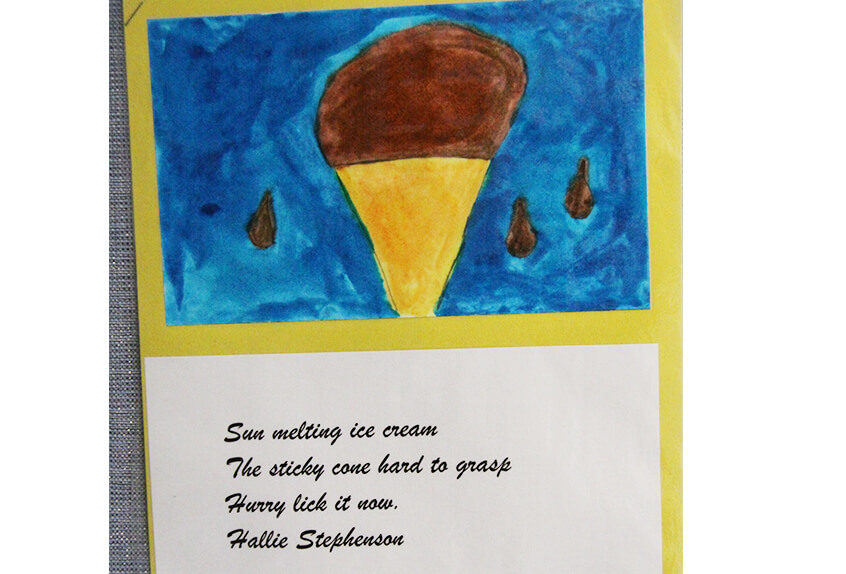 Sun melting ice cream
The sticky cone hard to grasp
Hurry lick it now.
Hallie Stephenson